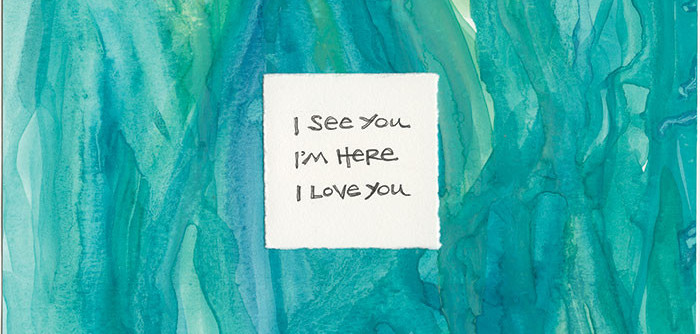 I See You
I'm Here
I Love You